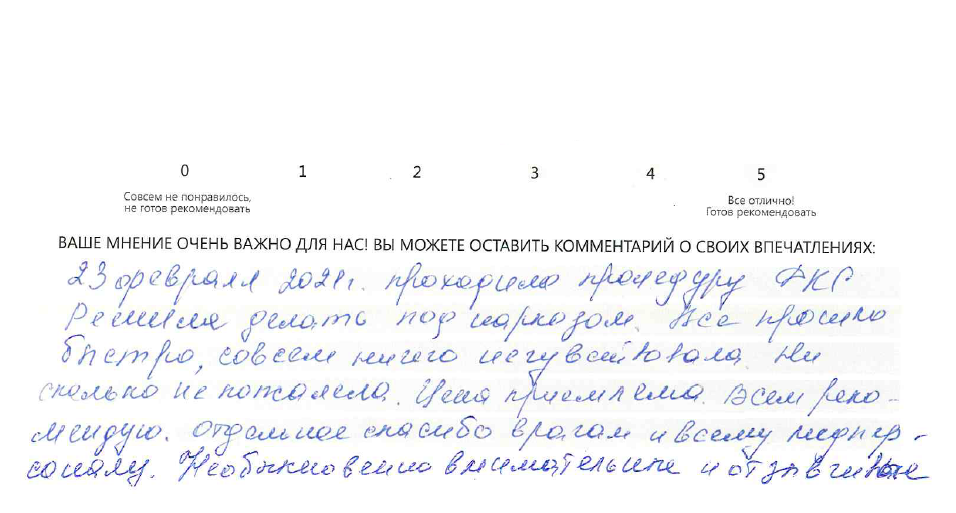 0 1 2 3 4 5
Совсем не понравилось, Все отлично!
не готов рекомендовать Готов рекомендовать
ВАШЕ МНЕНИЕ ОЧЕНЬ ВАЖНО ДЛЯ НАС! ВЫ МОЖЕТЕ ОСТАВИТЬ КОММЕНТАРИЙ О СВОИХ ВПЕЧАТЛЕНИЯХ:
23 февраля 2021г. проходила процедуру ФКС
Решила делать под наркозом. Все прошло
быстро, совсем ничего не чувствовала. Ни
сколько не пожалела. Цена приемлема. Всем реко-
мендую. Отдельное спасибо врачам и всему медпер-
соналу. Необыкновенно внимательные и отзывчивые